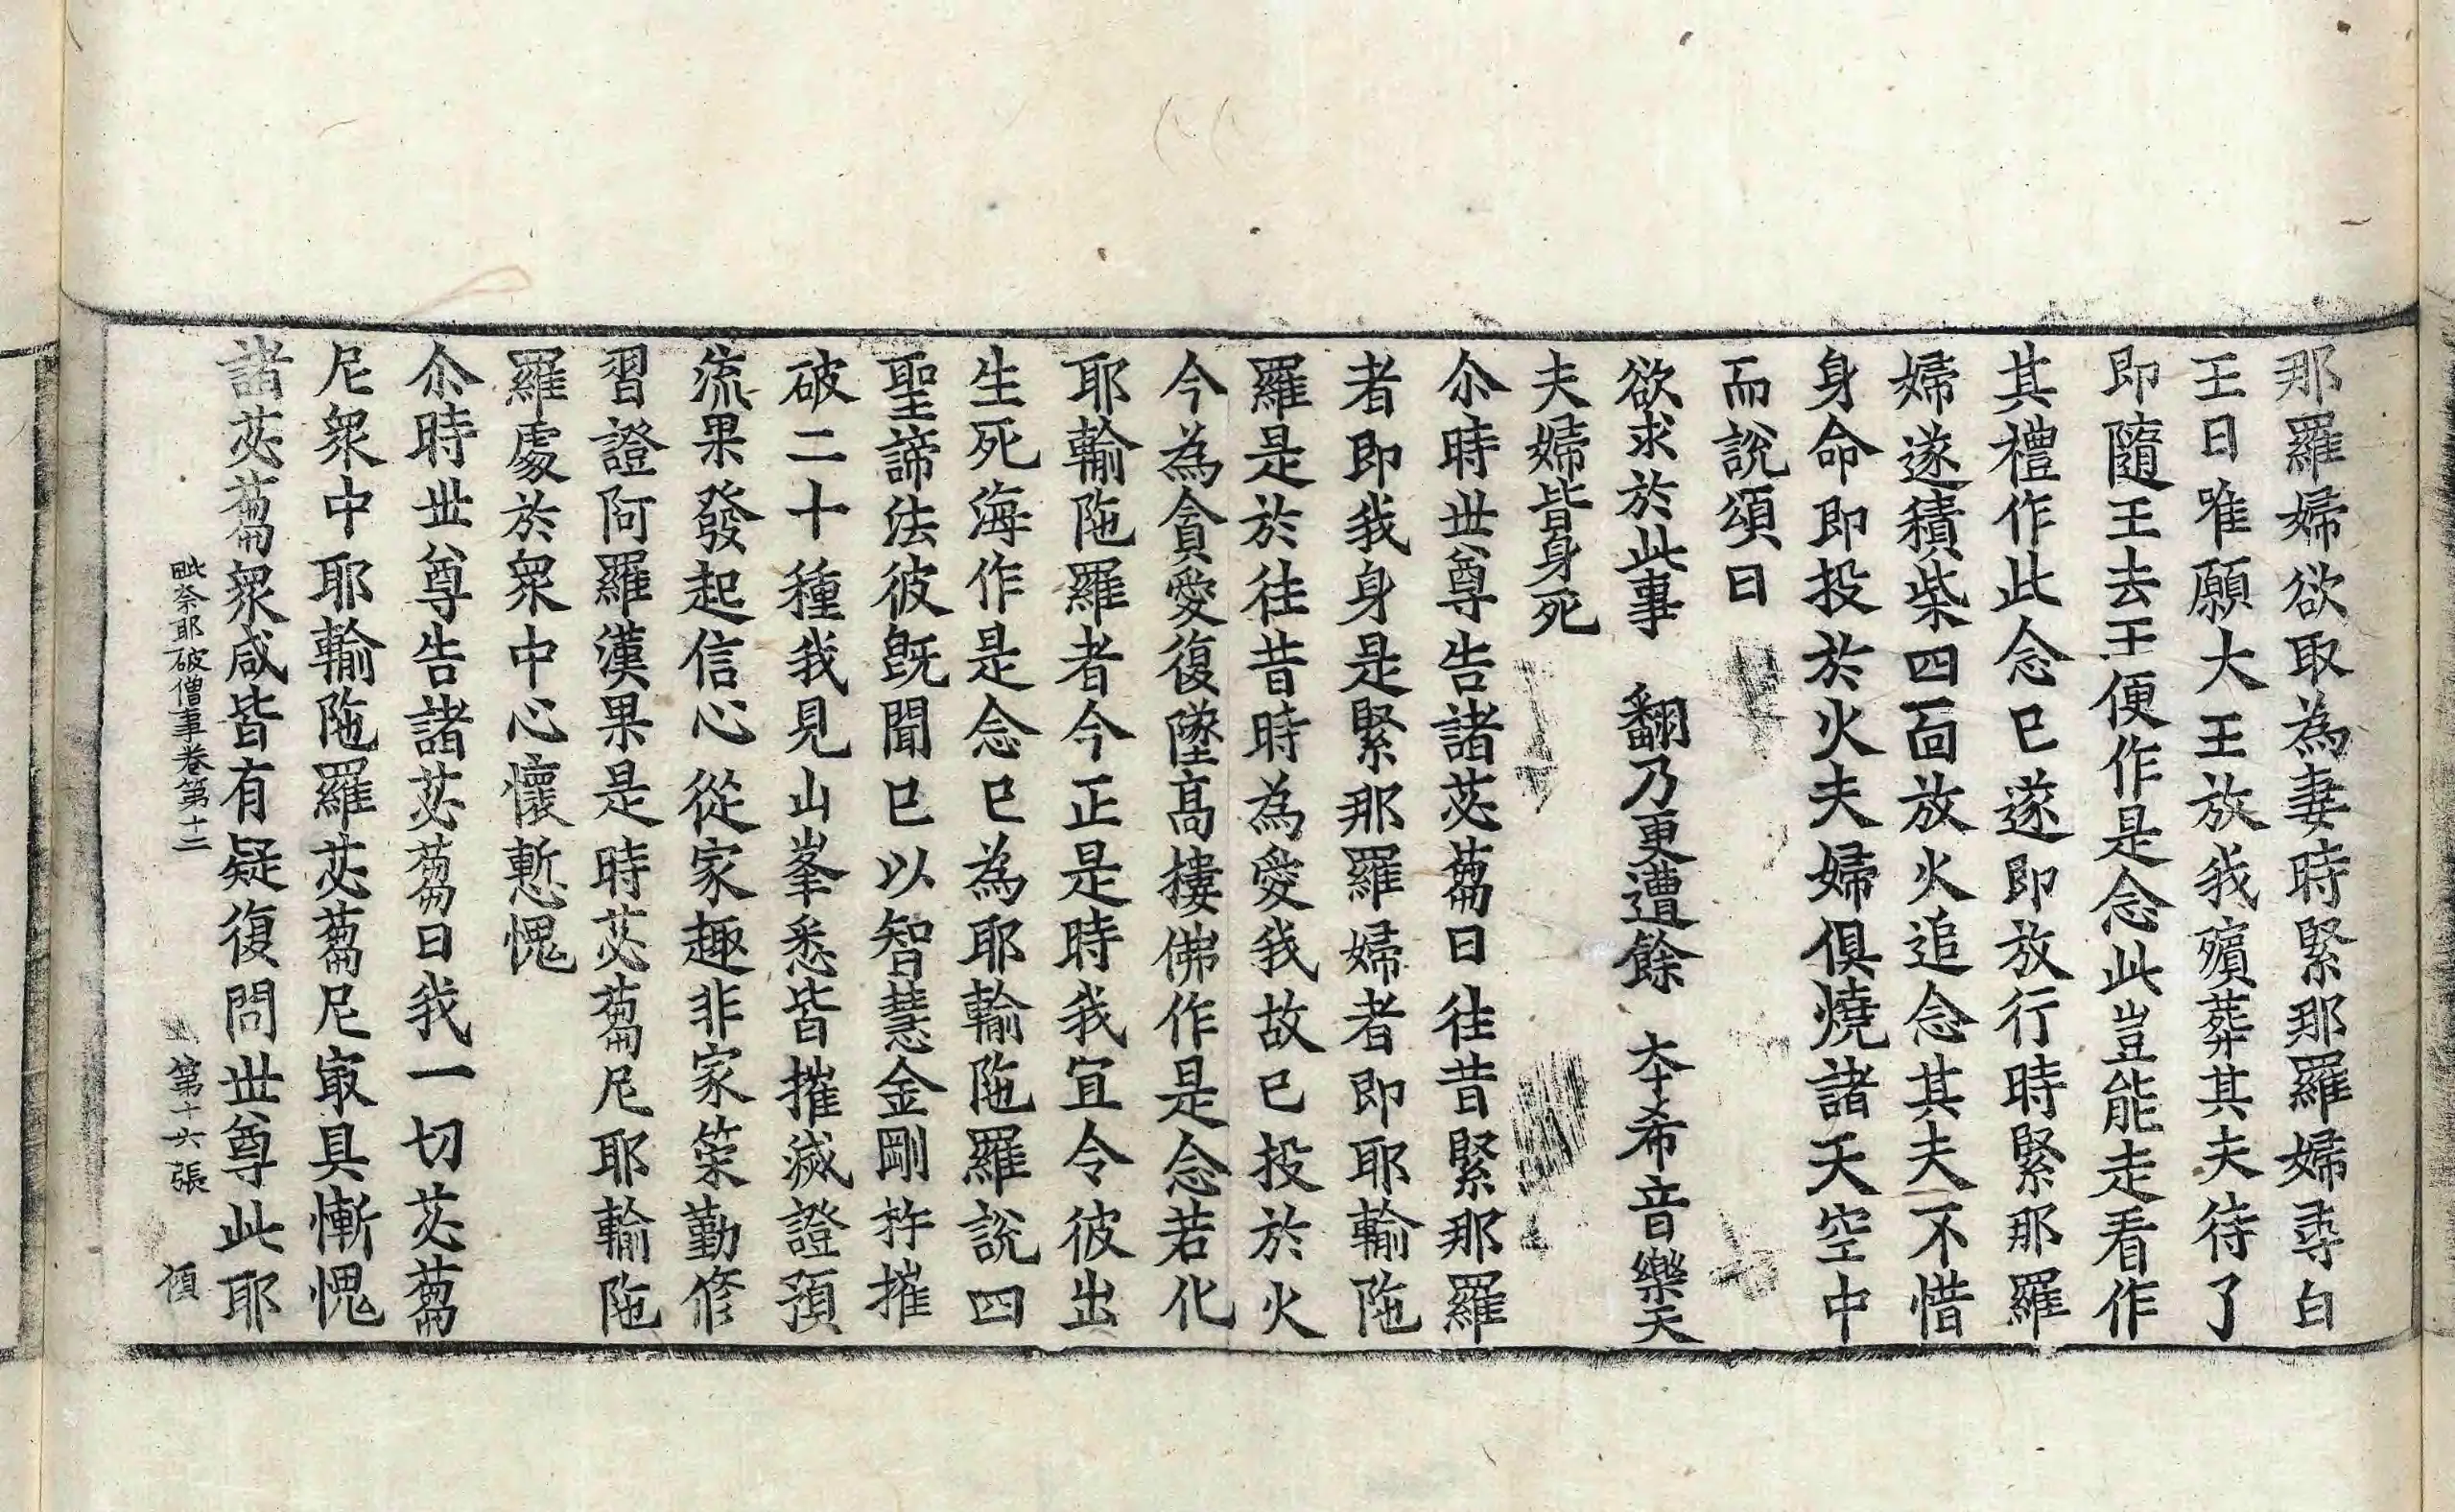 那羅婦欲取為妻時緊那羅婦尋白
王曰唯願大王放我殯葬其夫待了
即隨王去王便作是念此豈能走看作
其禮作此念已遂即放行時緊那羅
婦遂積柴四面放火追念其夫不惜
身命即投於火夫婦俱燒諸天空中
而說頌曰
欲求於此事　翻乃更遭餘　本希音樂天
夫婦皆身死
尒時世尊告諸苾蒭曰往昔緊那羅
者即我身是緊那羅婦者即耶輸陁
羅是於往昔時為愛我故已投於火
今為貪愛復墜高樓佛作是念若化
耶輸陁羅者今正是時我宜令彼出
生死海作是念已為耶輸陁羅說四
聖諦法彼旣聞已以智慧金剛杵摧
破二十種我見山峯悉皆摧滅證預
流果發起信心從家趣非家策勤修
習證阿羅漢果是時苾蒭尼耶輸陁
羅處於衆中心懷慙愧
尒時世尊告諸苾蒭曰我一切苾蒭
尼衆中耶輸陁羅苾蒭尼㝡具慚愧
諸苾蒭衆咸皆有疑復問世尊此耶
毗奈耶破僧事卷第十二　第十六張　湏